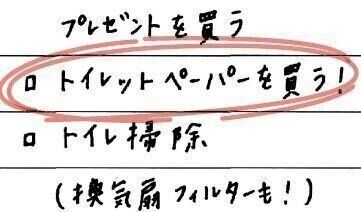 プレゼントを買う
□ トイレットペーパーを買う!
□ トイレ掃除
(換気扇フィルターも!)